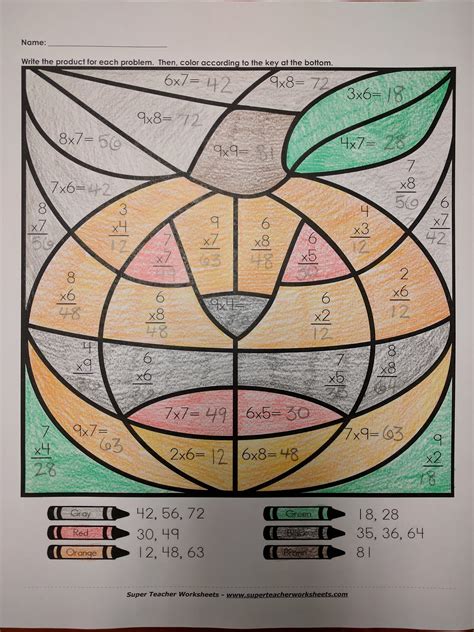 Name:
Write the product for each problem. Then, color according to the key at the bottom.
6x7= 42
9x8= 72
3x6= 18
9x8= 72
8x7= 56
9x9= 81
4x7= 28
7x6= 42
7
x8
56
6
x7
42
8
x7
56
3
x4
12
9
x7
63
6
x8
48
4
x3
12
7
x7
6
x5
6
x8
48
6
x8
48
9x4=
6
x2
12
2
x6
12
4
x9
6
x6
7
x5
8
x8
7x7= 49
6x5= 30
7
x4
28
9x7= 63
2x6= 12
6x8= 48
7x9= 63
9
x2
18
Gray 42, 56, 72
Green 18, 28
Red 30, 49
35, 36, 64
Orange 12, 48, 63
Brown 81
Super Teacher Worksheets - www.superteacherworksheets.com